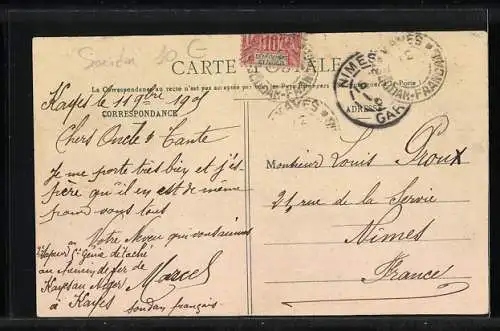 Soudan 10 C
CARTE POSTALE
La Correspondance au recto n'est pas acceptée par tous les pays étrangers
Kayes le 11 9bre 1905
CORRESPONDANCE
ADRESSE
Chers Oncle & Tante
Je me porte très bien et j'es-
père qu'il en est de même
pour vous tous
Votre Neveu qui vous aime
Marcel
Sapeur 5e Génie détaché
au Chemin de fer de
Kayes au Niger
à Kayes
Soudan français
Monsieur Louis Proux
21, rue de la Servie
Nimes
France
10
KAYES
SOUDAN-FRANÇAIS
NIMES
GARD
KAYES
SOUDAN-FRANÇAIS